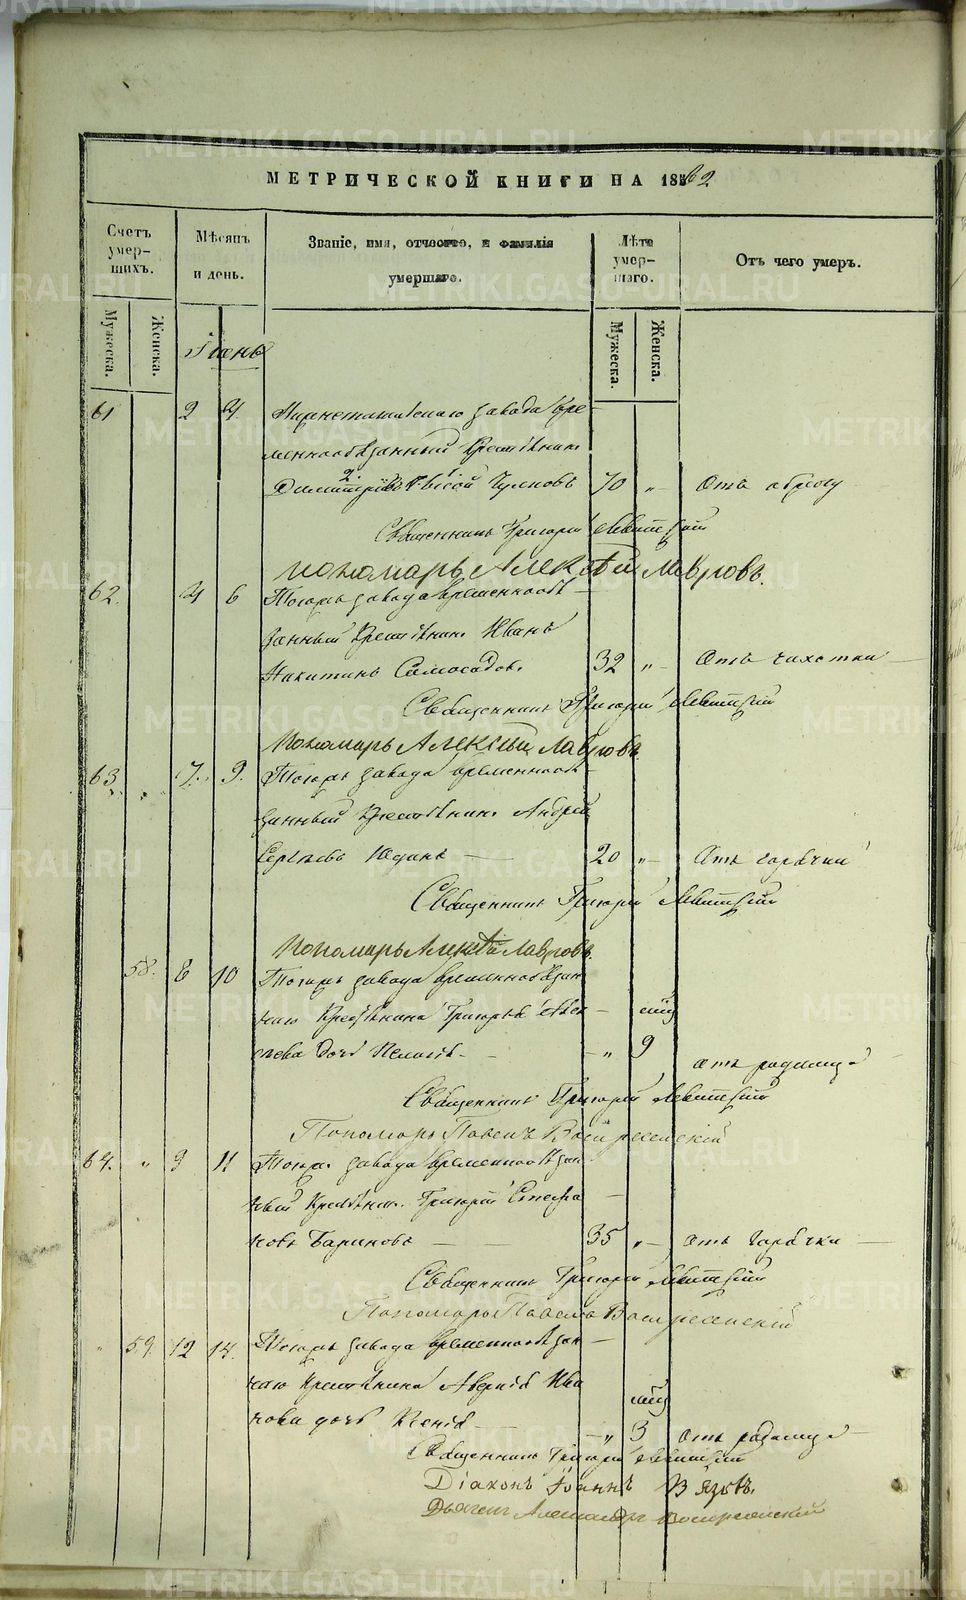 МЕТРИЧЕСКОЙ КНИГИ НА 1862
Счетъ умер-шихъ.
Мѣсяцъ и день.
Званіе, имя, отчество, и фамилія умершаго.
Лѣта умер-шаго.
Отъ чего умеръ.
Мужеска.
Женска.
Мужеска.
Женска.
Іюнь
61 2 4 Нижнетагильскаго завода вре-
меннообязанный крестьянинъ
2 1
Чулковъ 70 „ Отъ
Священникъ Григорій Левитскій
пономарь Алексѣй Лавровъ.
62. 4 6 Тогожъ завода временнообя-
занный крестьянинъ Иванъ
Никитинъ Самосадовъ 32 „ Отъ чахотки
Священникъ Григорій Левитскій
Пономарь Алексѣй Лавровъ
63 „ 7. 9. Тогожъ завода временнообя-
занный крестьянинъ Андрей
Сергѣевъ Юдинъ 20 „ Отъ горячки
Священникъ Григорій Левитскій
Пономарь Алексѣй Лавровъ.
58. 8 10 Тогожъ завода временнообязан-
наго крестьянина Григорья Алек-
сѣева дочь „ 9 отъ родимца
Священникъ Григорій Левитскій
Пономарь Павелъ Воскресенскій
64. „ 9 11 Тогожъ завода временнообязан-
ный крестьянинъ Григорій Степа-
новъ Бариновъ 35 „ отъ горячки
Священникъ Григорій Левитскій
Пономарь Павелъ Воскресенскій
„ 59. 12 14. Тогожъ завода временнообязан-
наго крестьянина Ива-
нова дочь Ксенія „ 3 отъ родимца
Священникъ Григорій Левитскій
Діаконъ Іоаннъ
Дьячекъ Александръ Воскресенскій
METRIKI.GASO-URAL.RU